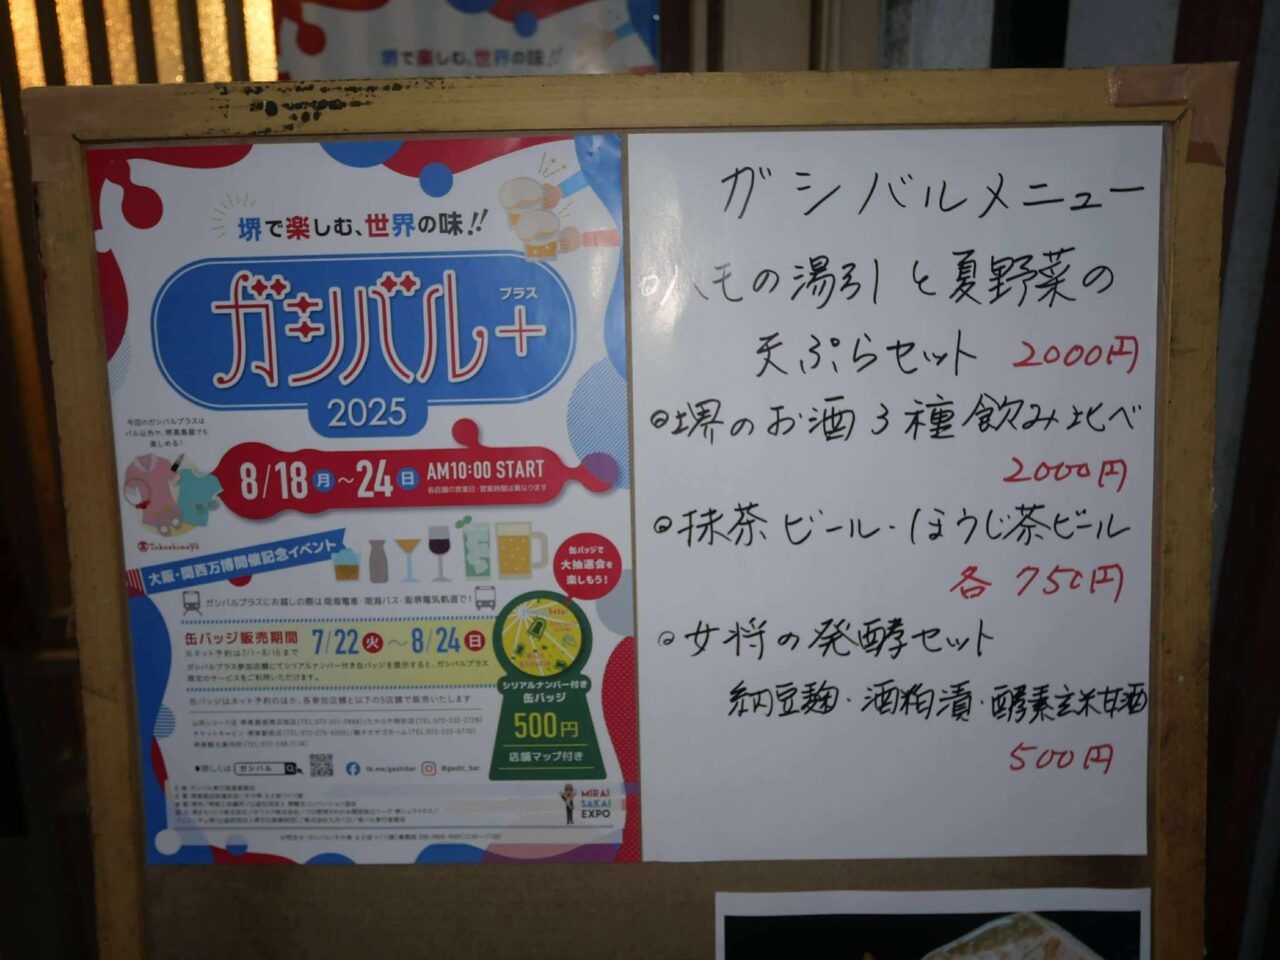 堺で楽しむ、世界の味!!
堺で楽しむ、世界の味!!
ガシバル+
プラス
2025
今回のガシバルプラスは
バル以外や、堺髙島屋でも
楽しめる!
8/18月~24日 AM10:00 START
各店舗の営業日・営業時間は異なります
Takashimaya
大阪・関西万博開催記念イベント
缶バッジで
大抽選会を
楽しもう!
ガシバルプラスにお越しの際は南海電車・南海バス・阪堺電気軌道で!
缶バッジ販売期間 7/22火~8/24日
※ネット予約は7/1~8/16まで
ガシバルプラス参加店舗にてシリアルナンバー付き缶バッジを提示すると、ガシバルプラス
限定のサービスをご利用いただけます。
缶バッジはネット予約のほか、各参加店舗と以下の5店舗で販売いたします
シリアルナンバー付き
缶バッジ
500円
店舗マップ付き
詳しくは ガシバル
fb.me/gashibar @gashi_bar
MIRAI
SAKAI
EXPO
ガシバルメニュー
ハモの湯引と夏野菜の
天ぷらセット 2000円
堺のお酒3種飲み比べ
2000円
抹茶ビール・ほうじ茶ビール
各750円
女将の発酵セット
納豆麹・酒粕漬・酵素玄米甘酒
500円